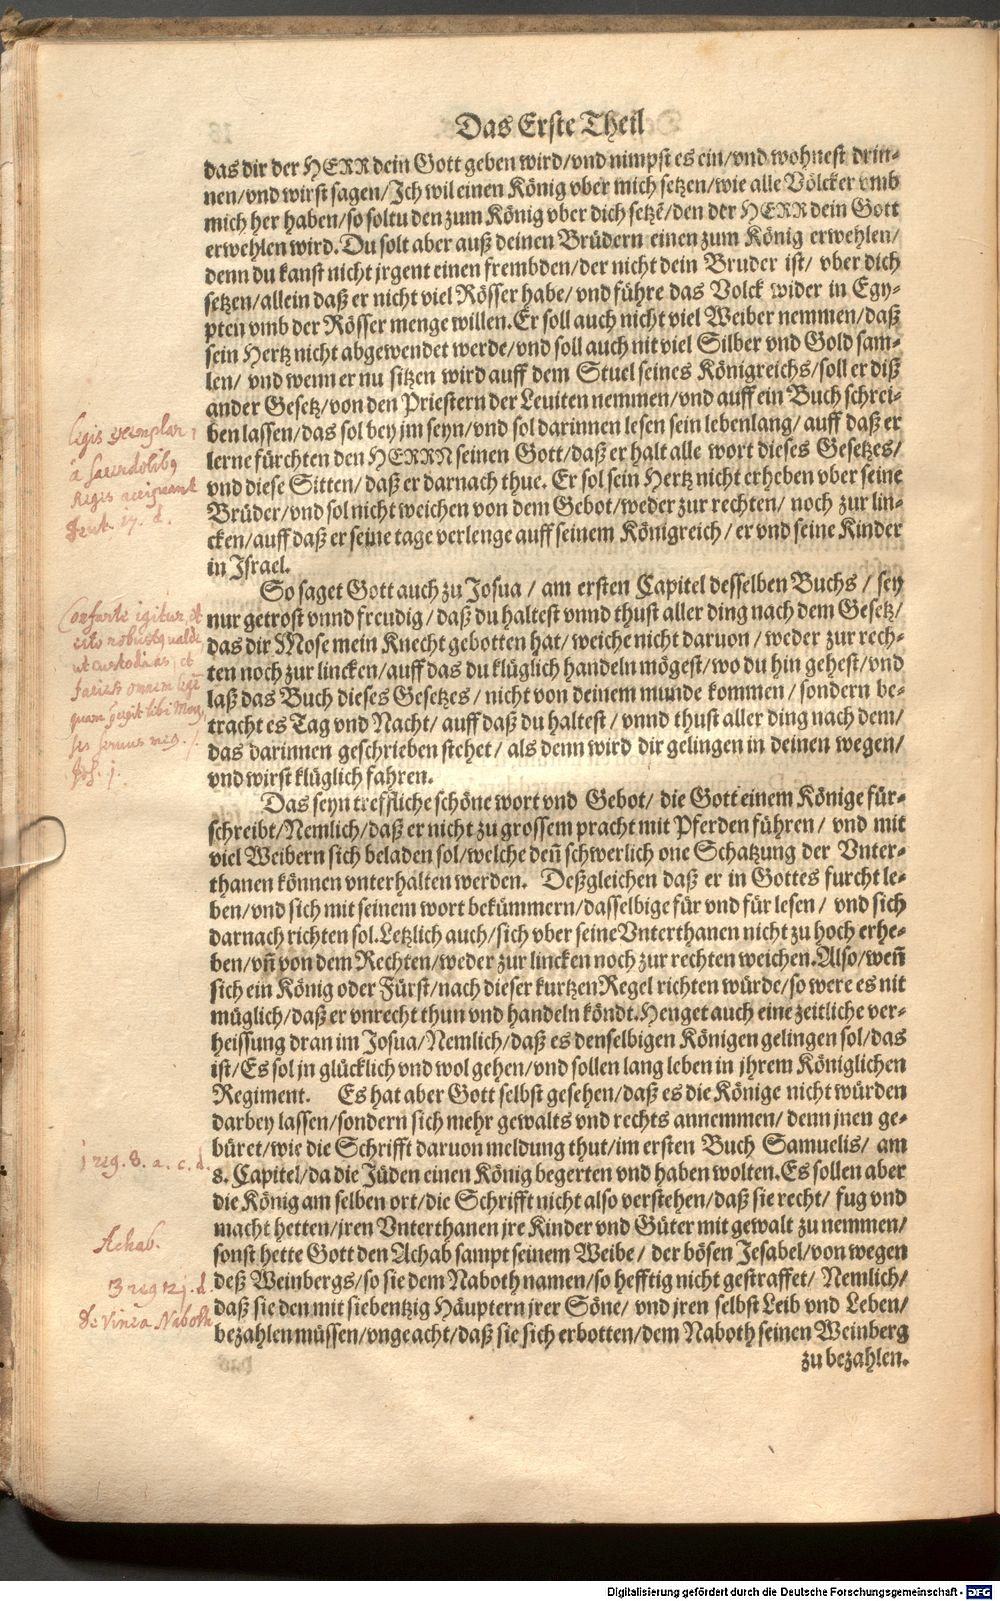 Das Erste Theil
das dir der HERR dein Gott geben wird/vnd nimpst es ein/vnd wohnest drin-
nen/vnd wirst sagen/Jch wil einen König vber mich setzen/wie alle Völcker vmb
mich her haben/so soltu den zum König vber dich setzē/den der HERR dein Gott
erwehlen wird. Du solt aber auß deinen Brüdern einen zum König erwehlen/
denn du kanst nicht jrgent einen frembden/der nicht dein Bruder ist/ vber dich
setzen/allein daß er nicht viel Rösser habe/ vnd führe das Volck wider in Egy-
pten vmb der Rösser menge willen. Er soll auch nicht viel Weiber nemmen/daß
sein Hertz nicht abgewendet werde/vnd soll auch nit viel Silber vnd Gold sam-
len/ vnd wenn er nu sitzen wird auff dem Stuel seines Königreichs/soll er diß
ander Gesetz/von den Priestern der Leuiten nemmen/vnd auff ein Buch schrei-
ben lassen/das sol bey jm seyn/vnd sol darinnen lesen sein lebenlang/ auff daß er
lerne fürchten den HERRN seinen Gott/daß er halt alle wort dieses Gesetzes/
vnd diese Sitten/ daß er darnach thue. Er sol sein Hertz nicht erheben vber seine
Brüder/vnd sol nicht weichen von dem Gebot/weder zur rechten/ noch zur lin-
cken/auff daß er seine tage verlenge auff seinem Königreich/ er vnd seine Kinder
in Jsrael.
So saget Gott auch zu Josua / am ersten Capitel desselben Buchs / sey
nur getrost vnnd freudig / daß du haltest vnnd thust aller ding nach dem Gesetz/
das dir Mose mein Knecht gebotten hat/ weiche nicht daruon / weder zur rech-
ten noch zur lincken/auff das du klüglich handeln mögest/wo du hin gehest/vnd
laß das Buch dieses Gesetzes / nicht von deinem munde kommen / sondern be-
tracht es Tag vnd Nacht/ auff daß du haltest / vnnd thust aller ding nach dem/
das darinnen geschrieben stehet/ als denn wird dir gelingen in deinen wegen/
vnd wirst klüglich fahren.
Das seyn treffliche schöne wort vnd Gebot/ die Gott einem Könige für-
schreibt/Nemlich/daß er nicht zu grossem pracht mit Pferden führen / vnd mit
viel Weibern sich beladen sol/welche deñ schwerlich one Schatzung der Vnter-
thanen können vnterhalten werden. Deßgleichen daß er in Gottes furcht le-
ben/vnd sich mit seinem wort bekümmern/dasselbige für vnd für lesen / vnd sich
darnach richten sol. Letzlich auch/sich vber seine Vnterthanen nicht zu hoch erhe-
ben/vñ von dem Rechten/weder zur lincken noch zur rechten weichen. Also/weñ
sich ein König oder Fürst/nach dieser kurtzen Regel richten würde/so were es nit
müglich/daß er vnrecht thun vnd handeln köndt. Henget auch eine zeitliche ver-
heissung dran im Josua/Nemlich/daß es denselbigen Königen gelingen sol/das
ist/Es sol jn glücklich vnd wol gehen/vnd sollen lang leben in jhrem Königlichen
Regiment. Es hat aber Gott selbst gesehen/daß es die Könige nicht würden
darbey lassen/sondern sich mehr gewalts vnd rechts annemmen/ denn jnen ge-
büret/wie die Schrifft daruon meldung thut/im ersten Buch Samuelis/ am
8. Capitel/da die Jüden einen König begerten vnd haben wolten. Es sollen aber
die König am selben ort/die Schrifft nicht also verstehen/daß sie recht/ fug vnd
macht hetten/jren Vnterthanen jre Kinder vnd Güter mit gewalt zu nemmen/
sonst hette Gott den Achab sampt seinem Weibe / der bösen Jesabel/von wegen
deß Weinbergs/so sie dem Naboth namen/so hefftig nicht gestraffet/ Nemlich/
daß sie den mit siebentzig Häuptern jrer Söne/ vnd jren selbst Leib vnd Leben/
bezahlen müssen/vngeacht/daß sie sich erbotten/dem Naboth seinen Weinberg
zu bezahlen.
legis exemplar
a sacerdotibq
Regis accipeant
Deut. 17. d.
Confortē igitur et
esto robustq valde
ut custodias, et
facias omnem legē
quam pręcepit tibi Moy
ses seruus meq.
Jos. j.
1 reg. 8. a. c. d.
Achab.
3 reg 21. d.
De Vinea Naboth
Digitalisierung gefördert durch die Deutsche Forschungsgemeinschaft - DFG